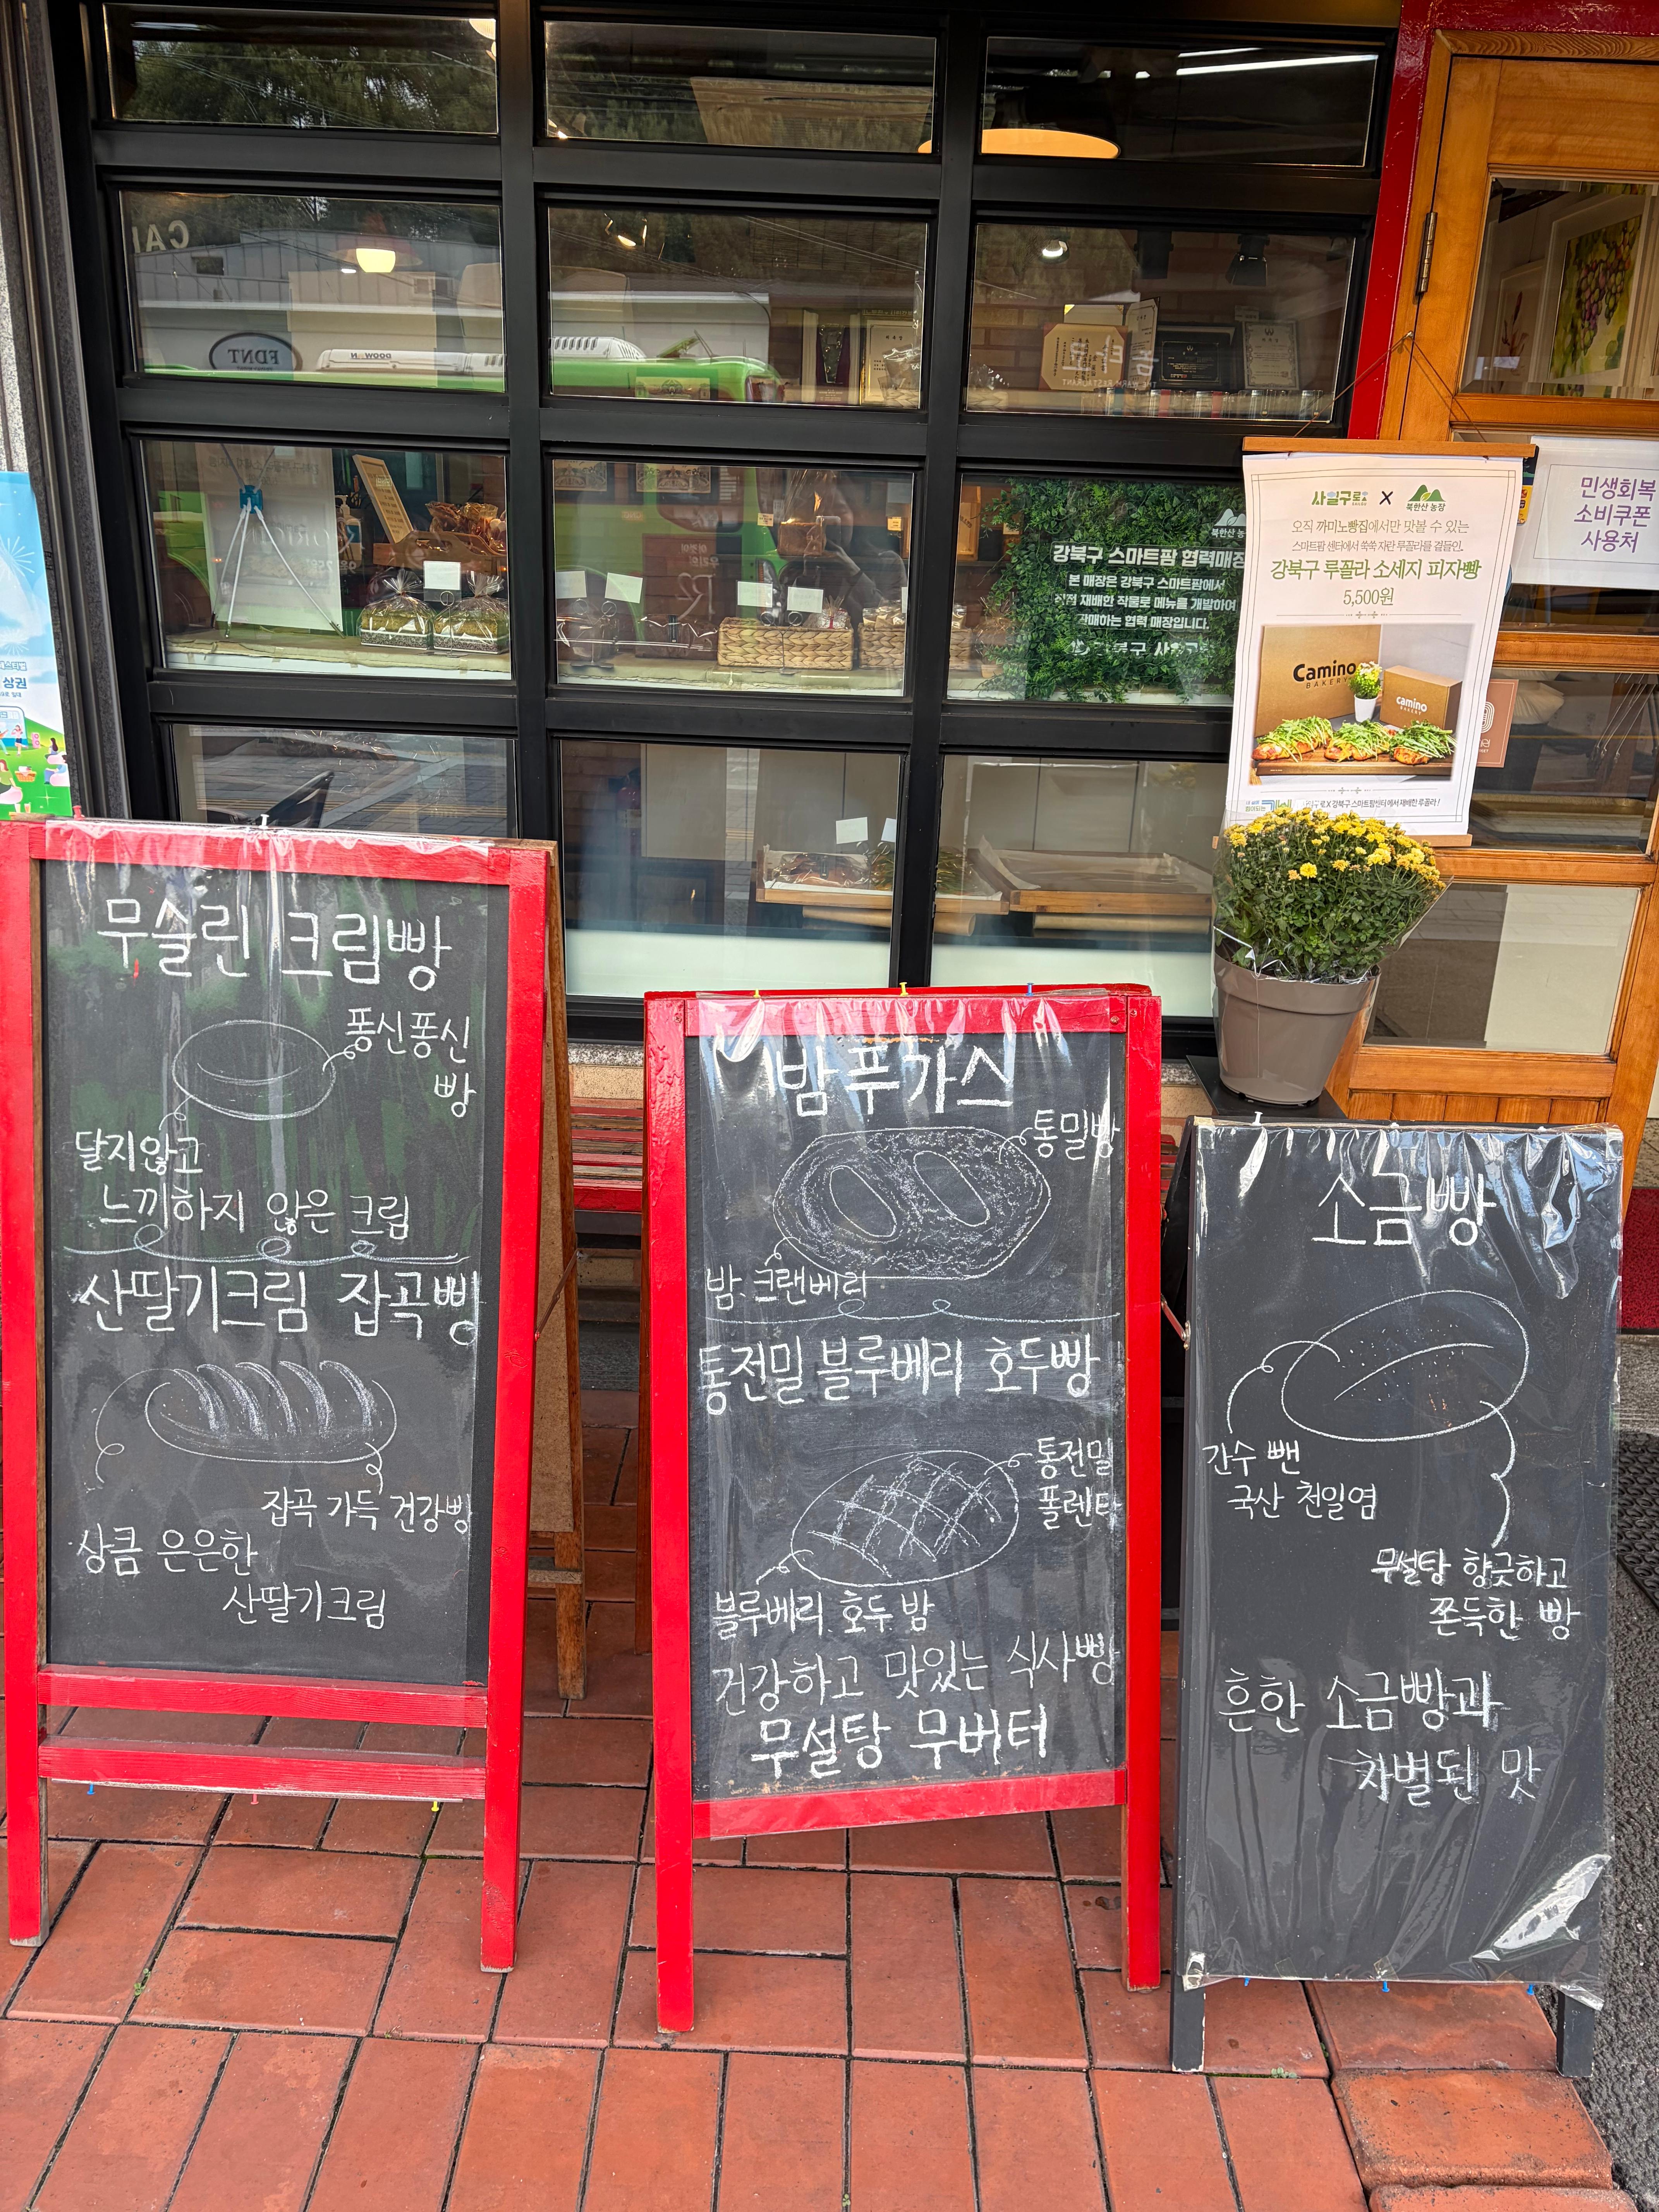 무슬린 크림빵
퐁신퐁신
빵
달지않고
느끼하지 않은 크림
산딸기크림 잡곡빵
잡곡 가득 건강빵
상큼 은은한
산딸기크림
밤푸가스
통밀빵
밤. 크랜베리
통전밀 블루베리 호두빵
통전밀
폴렌타
블루베리. 호두 밤
건강하고 맛있는 식사빵
무설탕 무버터
소금빵
간수 뺀
국산 천일염
무설탕 향긋하고
쫀득한 빵
흔한 소금빵과
차별된 맛
사일구로 X 북한산 농장
오직 까미노빵집에서만 맛볼 수 있는
스마트팜 센터에서 쑥쑥 자란 루꼴라를 곁들인,
강북구 루꼴라 소세지 피자빵
5,500원
Camino
BAKERY
camino
BAKERY
강북구 스마트팜센터에서 재배한 루꼴라!
민생회복
소비쿠폰
사용처
북한산 농
강북구 스마트팜 협력매장
본 매장은 강북구 스마트팜에서
직접 재배한 작물로 메뉴를 개발하여
판매하는 협력 매장입니다.
강북구
상권
FDNT
DOOWON